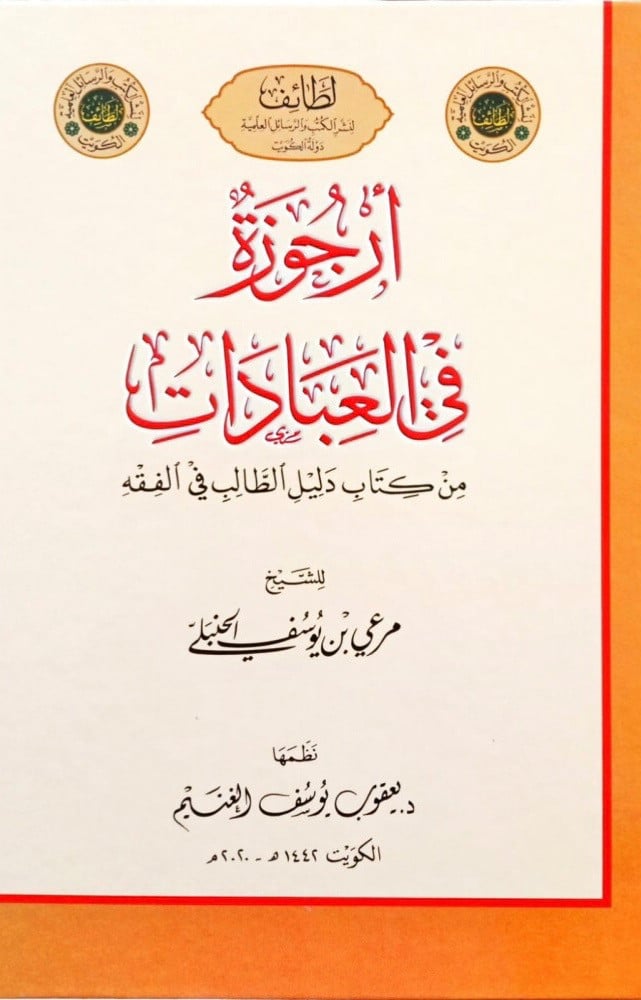 لطائف
لنشر الكتب والرسائل العلمية
دولة الكويت
لنشر الكتب والرسائل العلمية
لطائف
الكويت
لنشر الكتب والرسائل العلمية
لطائف
الكويت
أُرْجُوزَةٌ
فِي العِبَادَاتِ
مِنْ كِتَابِ دَلِيْلِ الطَّالِبِ فِي الفِقْهِ
لِلشَّيْخِ
مرعي بن يُوسُف الحنبليّ
نَظَمَهَا
د. يعقوب يُوسُف الغنيم
الكوَيْت ١٤٤٢ هـ - ٢٠٢٠ م